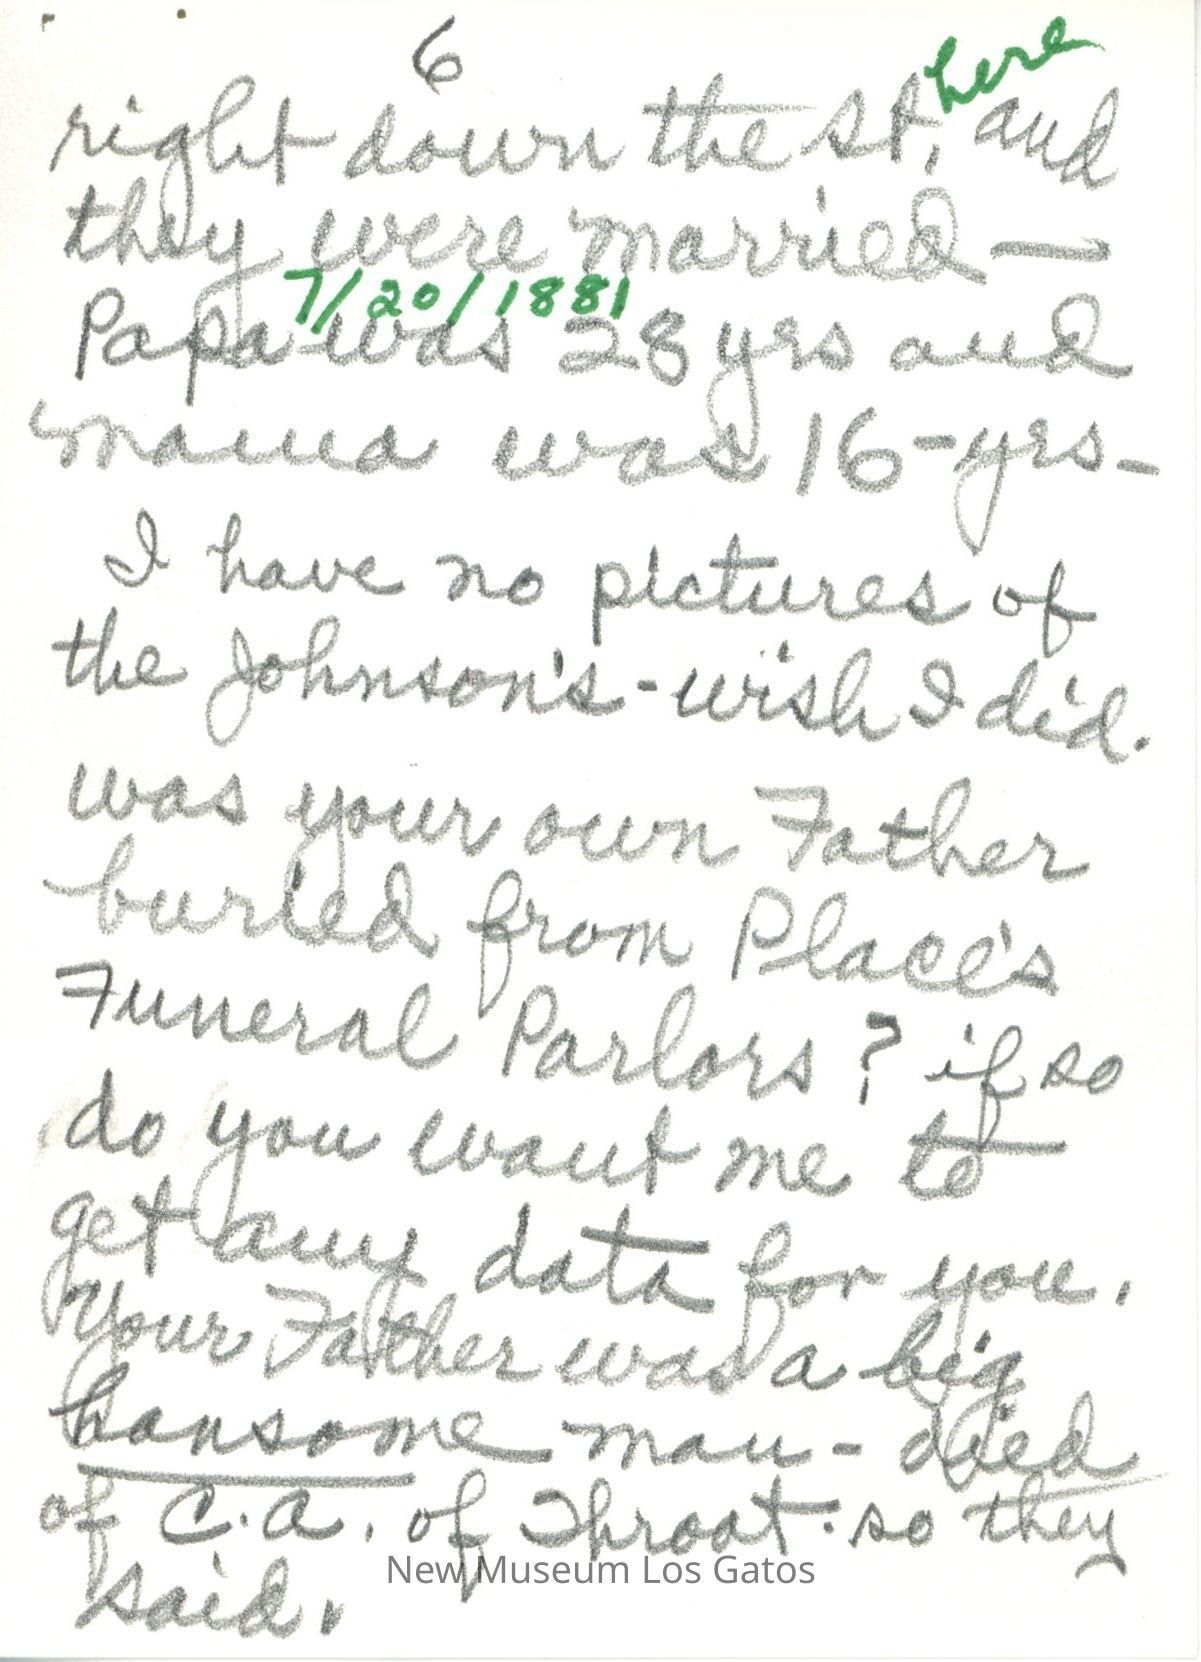 6
right down the st, here and
they were married —
7/20/1881
Papa was 28 yrs and
mama was 16-yrs-
I have no pictures of
the Johnson's - wish I did.
was your own Father
buried from Place's
Funeral Parlors? if so
do you want me to
get any data for you.
Your Father was a big
hansome man - died
of C.A. of Throat. so they
said.
New Museum Los Gatos